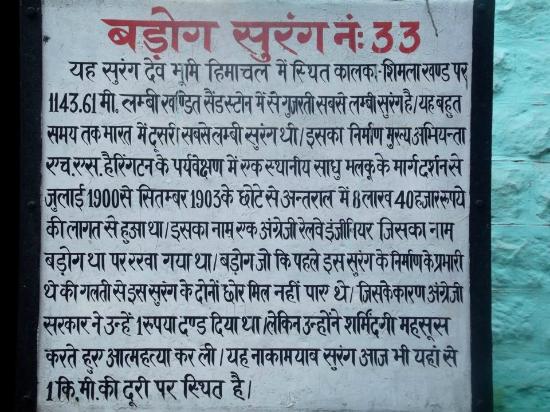 बड़ोग सुरंग नं: 33
यह सुरंग देव भूमि हिमाचल में स्थित कालका-शिमला खण्ड पर
1143.61 मी. लम्बी खण्डित सैंडस्टोन में से गुजरती सबसे लम्बी सुरंग है/यह बहुत
समय तक भारत में दूसरी सबसे लम्बी सुरंग थी/इसका निर्माण मुख्य अभियन्ता
एच.एस. हैरिंगटन के पर्यवेक्षण में एक स्थानीय साधु मलकू के मार्गदर्शन से
जुलाई 1900 से सितम्बर 1903 के छोटे से अन्तराल में 8 लाख 40 हजार रूपये
की लागत से हुआ था/इसका नाम एक अंग्रेजी रेलवे इंजीनियर जिसका नाम
बड़ोग था पर रखा गया था/बड़ोग जो कि पहले इस सुरंग के निर्माण के प्रभारी
थे की गलती से इस सुरंग के दोनों छोर मिल नहीं पाए थे/जिसके कारण अंग्रेजी
सरकार ने उन्हें 1 रूपया दण्ड दिया था/लेकिन उन्होंने शर्मिंदगी महसूस
करते हुए आत्महत्या कर ली/यह नाकामयाब सुरंग आज भी यहां से
1 कि.मी. की दूरी पर स्थित है/